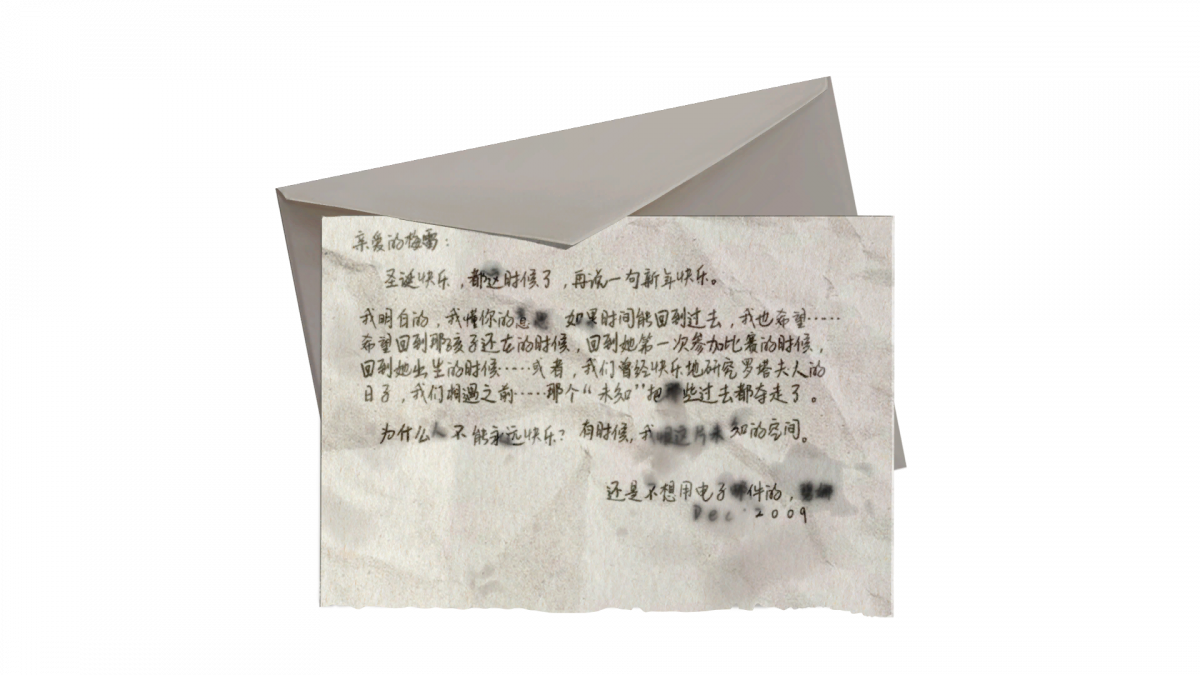 亲爱的梅雷：
圣诞快乐，都这时候了，再说一句新年快乐。
我明白的，我懂你的 如果时间能回到过去，我也希望……
希望回到那孩子还在的时候，回到她第一次参加比赛的时候，
回到她出生的时候……或者，我们曾经快乐地研究罗塔夫人的
日子，我们相遇之前……那个“未知”把那些过去都夺走了。
为什么人不能永远快乐？有时候，我 知的空间。
还是不想用电子邮件的，
Dec 2009